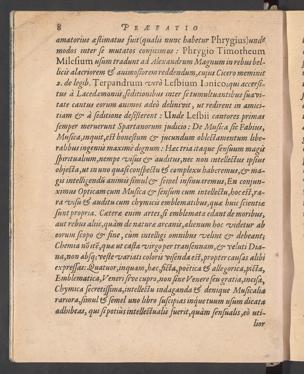 8 PRÆFATIO
amatorius æstimatus fuit (qualis nunc habetur Phrygius) unde
modos inter se mutatos conjicimus: Phrygio Timotheum
Milesium usum tradunt ad Alexandrum Magnum in rebus bel-
licis alacriorem & animosiorem reddendum, cujus Cicero meminit
2. de legib. Terpandrum verò Lesbium Ionico; qui accersi-
tus à Lacedæmoniis seditiosis, hos inter se tumultuantibus sua vi-
tate cantus eorum animos adeò delinivit, ut redirent in amici-
tiam & à seditione desisterent: Unde Lesbii cantores primas
semper meruerunt Spartanorum judicio: De Musica sic Fabius,
Musica, inquit, est honestum & jucundum oblectamentum libe-
ralibus ingeniis maximè dignum: Hæc tria itaque sensuum magis
spiritualium, nempe visus & auditus, nec non intellectus ipsius
objecta, ut in uno quasi conspectu & complexu haberemus, & ma-
gis intelligendū animis simul & semel insinuaremus, En conjun-
ximus Opticam cum Musica & sensum cum intellectu, hoc est, ra-
ra visu & auditu cum chymicis emblematibus, quæ huic scientiæ
sunt propria. Cæteræ enim artes, si emblemata edant de moribus,
aut rebus aliis, quàm de naturæ arcanis, alienum hoc videtur ab
eorum scopo & fine, cùm intelligi omnibus velint & debeant;
Chemia nō itē, quæ ut casta virgo per transennam, & veluti Dia-
na, non absq; veste variati coloris videnda est, propter causas alibi
expressas: Quatuor, inquam, hæc, ficta, poëtica & allegorica, picta,
Emblematica, Veneri sive cupro, non sine Venere seu gratia, incisa,
Chymica secretissima, intellectu indaganda & denique Musicalia
rariora, simul & semel uno libro suscipias inque tuum usum dicata
adhibeas, qui si potiùs intellectualis fuerit, quàm sensualis, eò uti-
lior